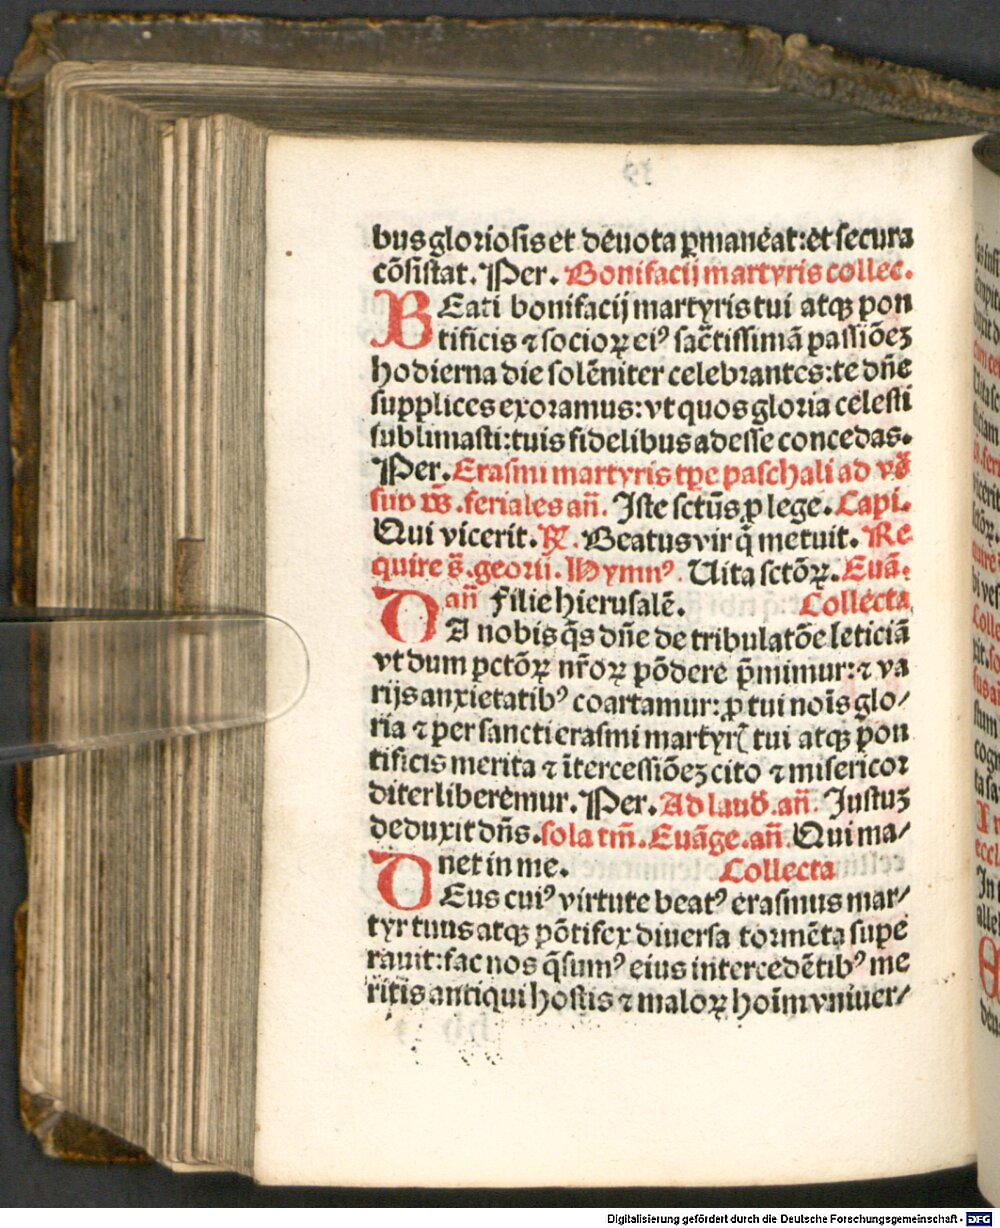 bus gloriosis et deuota ꝑmaneat: et secura
cõsistat. Per. Bonifacij martyris collec.
BEati bonifacij martyris tui atqꝫ pon
tificis ⁊ socioꝝ eiꝰ sac̃tissimã passiõeꝫ
hodierna die solẽniter celebrantes: te dñe
supplices exoramus: vt quos gloria celesti
sublimasti: tuis fidelibus adesse concedas.
Per. Erasmi martyris tꝑe paschali ad vꝰ
sup pͣs. feriales añ. Iste sctũs ꝓ lege. Capi.
Qui vicerit. ℟. Beatus vir q̃ metuit. Re
quire s̃. georij. Hymnꝰ. Uita sctõꝝ. Euã.
añ Filie hierusalẽ. Collecta
DA nobis q̃s dñe de tribulatõe leticiã
vt dum pctõꝝ nr̃oꝝ põdere p̃mimur: ⁊ va
rijs anxietatibꝰ coartamur: ꝓ tui noĩs glo/
ria ⁊ per sancti erasmi martyrꝭ tui atqꝫ pon
tificis merita ⁊ ĩtercessiõeꝫ cito ⁊ misericor
diter liberemur. Per. Ad laud̃. añ. Iustuꝫ
deduxit dñs. sola tm̃. Euãge. añ. Qui ma/
net in me. Collecta
DEus cuiꝰ virtute beatꝰ erasmus mar/
tyr tuus atqꝫ põtifex diuersa tormẽta supe
rauit: fac nos q̃sumꝰ eius intercedẽtibꝰ me
ritis antiqui hostis ⁊ maloꝝ hoĩm vniuer/
Digitalisierung gefördert durch die Deutsche Forschungsgemeinschaft - DFG